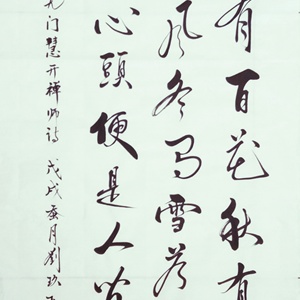 有百花秋有
风冬有雪若
心頭便是人间
无门慧开禅师诗 戊戌春月劉玖